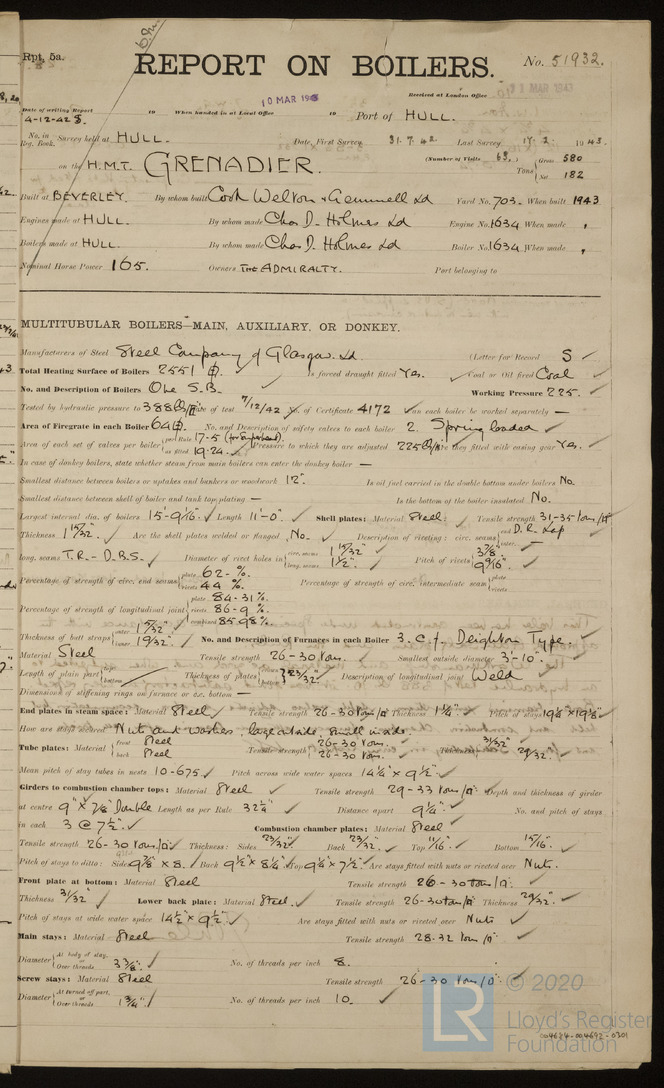 Rpt. 5a.
REPORT ON BOILERS.
No. 51932.
Received at London Office
Date of writing Report
4-12-42
19
When handed in at Local Office
10 MAR
19
Port of HULL.
No. in Reg. Book.
Survey held at HULL.
Date, First Survey 31.7.42 Last Survey 17.2. 1943.
on the H.M.T. GRENADIER.
(Number of Visits 63.)
Tons { Gross 580
Net 182
Built at BEVERLEY. By whom built Cook Welton & Gemmell Ld Yard No. 703. When built 1943
Engines made at HULL. By whom made Chas D. Holmes Ld Engine No. 1634 When made "
Boilers made at HULL. By whom made Chas D. Holmes Ld Boiler No. 1634 When made "
Nominal Horse Power 165. Owners THE ADMIRALTY. Port belonging to
MULTITUBULAR BOILERS—MAIN, AUXILIARY, OR DONKEY.
Manufacturers of Steel Steel Company of Glasgow Ld. (Letter for Record S
Total Heating Surface of Boilers 2551 ф. Is forced draught fitted Yes. Coal or Oil fired Coal
No. and Description of Boilers One S.B. Working Pressure 225.
Tested by hydraulic pressure to 388 Date of test 7/12/42 No. of Certificate 4172 Can each boiler be worked separately —
Area of Firegrate in each Boiler 64 ф. No. and Description of safety valves to each boiler 2. Spring loaded
Area of each set of valves per boiler { per Rule 17-5 (for Superheat). as fitted 19.24. Pressure to which they are adjusted 225 Are they fitted with easing gear Yes.
In case of donkey boilers, state whether steam from main boilers can enter the donkey boiler —
Smallest distance between boilers or uptakes and bunkers or woodwork 12". Is oil fuel carried in the double bottom under boilers No.
Smallest distance between shell of boiler and tank top plating — Is the bottom of the boiler insulated No.
Largest internal dia. of boilers 15'-0 9/16" Length 11'-0" Shell plates: Material Steel. Tensile strength 31-35 tons/□"
Thickness 1 15/32" Are the shell plates welded or flanged No. Description of riveting: circ. seams { end D.R. Lap inter. —
long. seams T.R. - D.B.S. Diameter of rivet holes in { circ. seams 1 15/32" long. seams 1 1/2" Pitch of rivets { 3 7/8" 9 9/16"
Percentage of strength of circ. end seams { plate 62- %. rivets 44 %. Percentage of strength of circ. intermediate seam { plate rivets
Percentage of strength of longitudinal joint { plate 84-31 %. rivets 86-9 %. combined 85-98 %.
Thickness of butt straps { outer 1 5/32" inner 1 9/32" No. and Description of Furnaces in each Boiler 3. C.f. Deighton Type.
Material Steel Tensile strength 26-30 tons. Smallest outside diameter 3'-10".
Length of plain part { top bottom Thickness of plates { crown bottom } 23/32" Description of longitudinal joint Weld
Dimensions of stiffening rings on furnace or c.c. bottom —
End plates in steam space: Material Steel Tensile strength 26-30 tons/□" Thickness 1 1/4". Pitch of stays 19 1/8" x 19 1/8"
How are stays secured Nuts and washers large outside, small inside.
Tube plates: Material { front Steel back Steel Tensile strength { 26-30 tons. 26-30 tons. Thickness { 31/32" 29/32"
Mean pitch of stay tubes in nests 10-675. Pitch across wide water spaces 14 1/4" x 9 1/2"
Girders to combustion chamber tops: Material Steel Tensile strength 29-33 tons/□" Depth and thickness of girder
at centre 9" x 7/8" Double Length as per Rule 32 1/4" Distance apart 9 1/4" No. and pitch of stays
in each 3 @ 7 1/2" Combustion chamber plates: Material Steel
Tensile strength 26-30 tons/□" Thickness: Sides 23/32" Back 23/32" Top 11/16" Bottom 15/16"
Pitch of stays to ditto: Sides 9 7/8 x 8. Back 9 1/2" x 8 1/4" Top 9 1/4" x 7 1/2" Are stays fitted with nuts or riveted over Nuts.
Front plate at bottom: Material Steel Tensile strength 26-30 tons/□"
Thickness 31/32" Lower back plate: Material Steel. Tensile strength 26-30 tons/□" Thickness 29/32"
Pitch of stays at wide water space 14 1/2" x 9 1/2" Are stays fitted with nuts or riveted over Nuts
Main stays: Material Steel Tensile strength 28-32 tons/□"
Diameter { At body of stay, or Over threads 3 3/8" No. of threads per inch 8.
Screw stays: Material Steel Tensile strength 26-30 tons/□"
Diameter { At turned off part, or Over threads 1 3/4" No. of threads per inch 10.
LR © 2020
Lloyd's Register
Foundation
004684-004692-0301